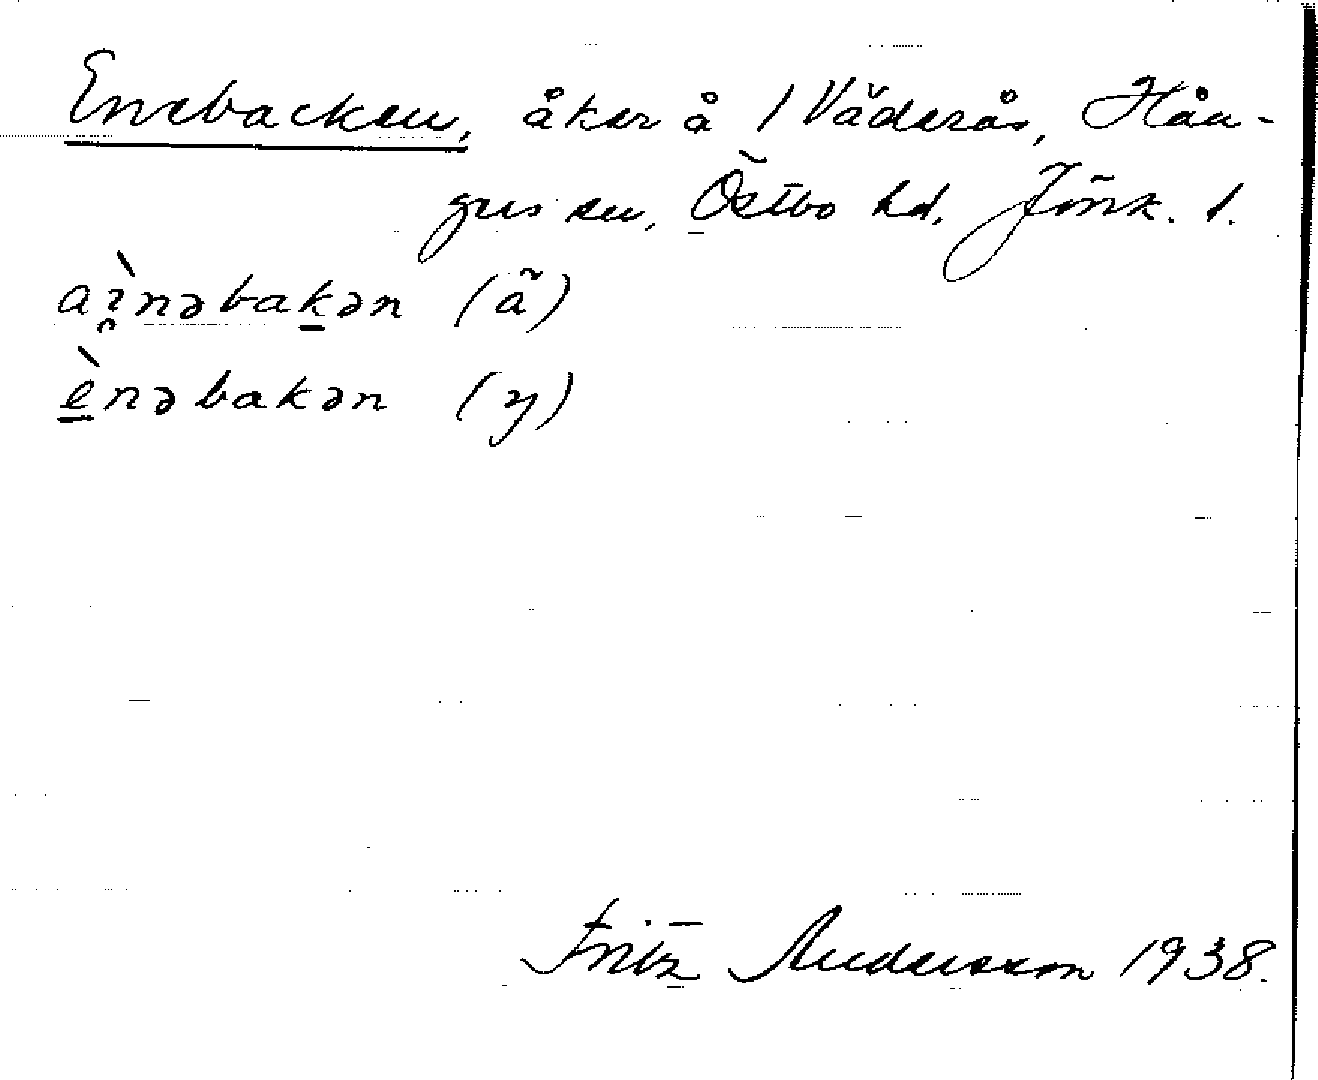 Enebacken, åker å 1 Väderås, Hån-
ger sn, Östbo hd. Jönk. l.
aı̯̀nəbak̠ən (ä)
è̠nəbakən (y)
Fritz Andersson 1938.